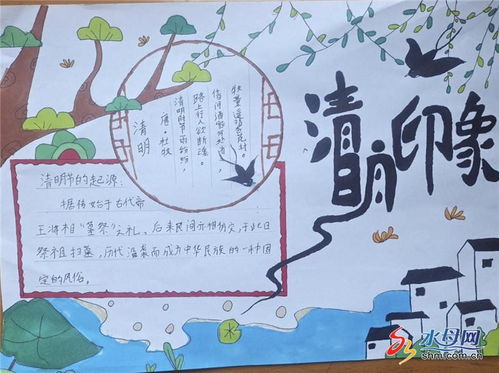 清明印象
清明
唐·杜牧
清明时节雨纷纷，
路上行人欲断魂。
借问酒家何处有，
牧童遥指杏花村。
清明节的起源：
据传始于古代帝
王将相“墓祭”之礼、后来民间亦相仿效，于此日
祭祖扫墓，历代沿袭而成为中华民族的一种固
定的风俗。
水母网
shm.com.cn